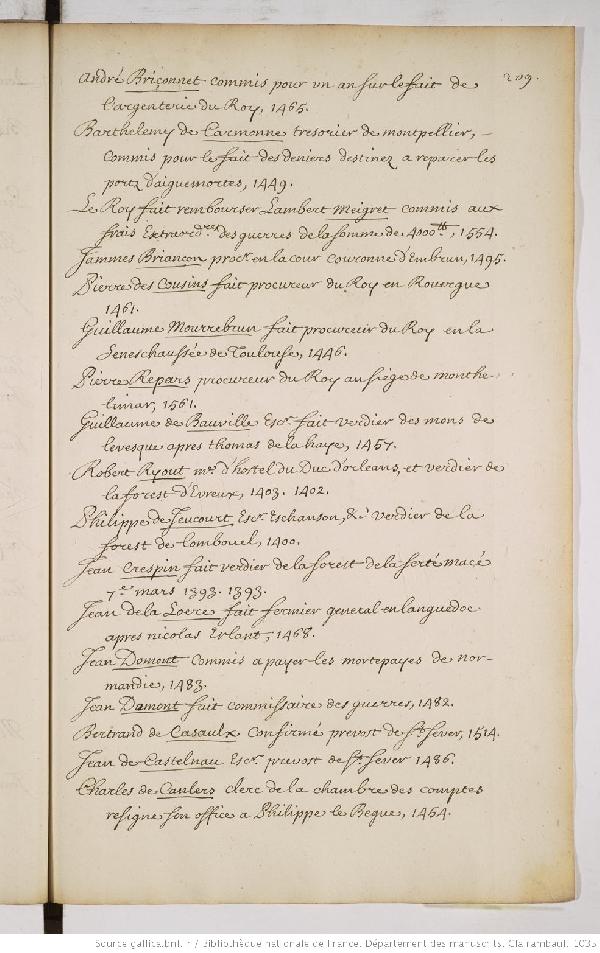 209.
André Briçonnet commis pour un an sur le fait de
l'argenterie du Roy, 1465.
Barthelemy de Carmonne tresorier de montpellier,
commis pour le fait des deniers destinez a reparer les
portz d'aiguemortes, 1449.
Le Roy fait rembourser Lambert Meigret commis aux
frais Extraord.res des guerres de la somme de 4000.lt, 1554.
Jammes Briançon procr. en la cour couronne d'Embrun, 1495.
Pierre des Cousins fait procureur du Roy en Rouergue
1461.
Guillaume Mourrebrun fait procureur du Roy en la
Seneschaussée de Toulouse, 1446.
Pierre Repars procureur du Roy au siége de monthe-
limar, 1561.
Guillaume de Bauville Escr. fait verdier des mons de
levesque apres thomas de la haye, 1457.
Robert Ryout me. d'hostel du Duc d'orleans, et verdier de
la forest d'Evreux, 1403. 1402.
Philippe de Jeucourt Escr. Eschanson, &c verdier de la
forest de , 1400.
Jean Crespin fait verdier de la forest de la ferté macé
7.e mars 1393. 1393.
Jean de la Loere fait fermier general en languedoc
apres nicolas Erlant, 1468.
Jean Domont commis a payer les mortepayes de nor-
mandie, 1483.
Jean Damont fait commissaire des guerres, 1482.
Bertrand de Casaulx confirmé prevost de St. Sever, 1514.
Jean de Castelnau Escr. prevost de St. Sever 1486.
Charles de Canlers clerc de la chambre des comptes
resigne son office a Philippe le Begue, 1454.
Source gallica.bnf.fr / Bibliothèque nationale de France. Département des manuscrits. Clairambault 1035